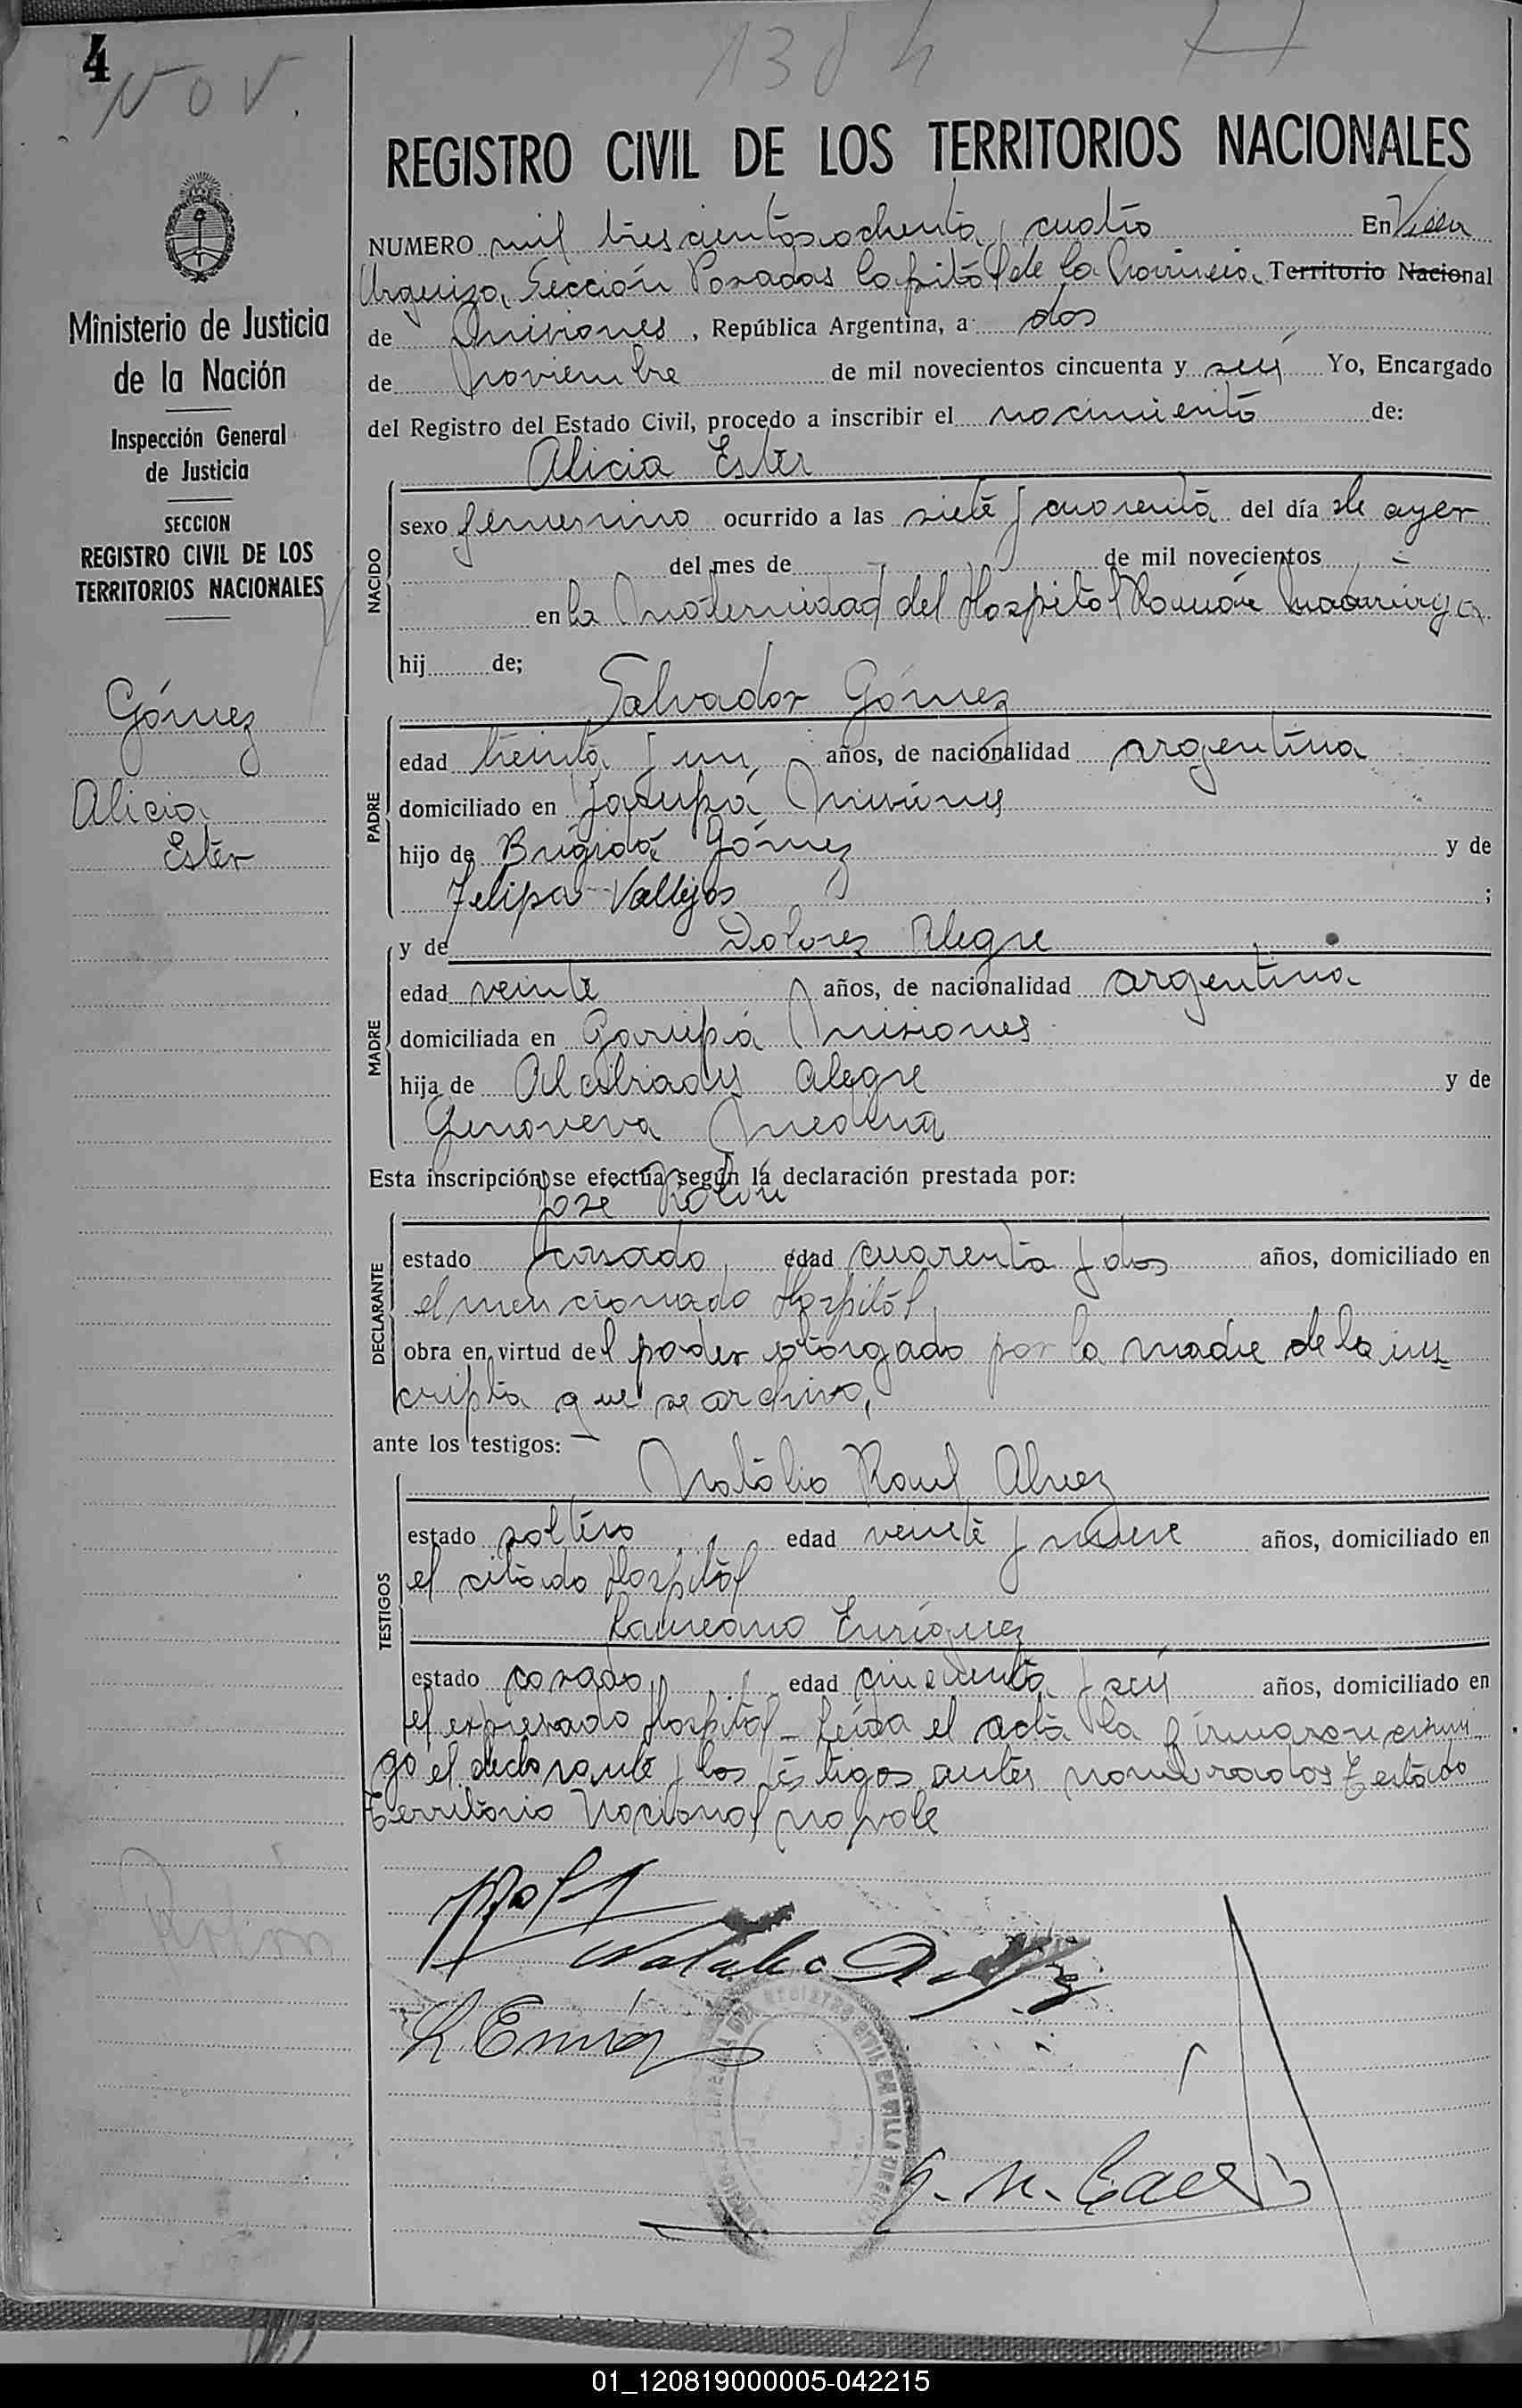 4
Nov.
1384
REGISTRO CIVIL DE LOS TERRITORIOS NACIONALES
NUMERO mil trescientos ochenta y cuatro En Villa
Urquiza, Sección Posadas Capital de la Provincia, Territorio Nacional
de Misiones, República Argentina, a dos
de noviembre de mil novecientos cincuenta y seis Yo, Encargado
del Registro del Estado Civil, procedo a inscribir el nacimiento de:
Alicia Ester
NACIDO
sexo femenino ocurrido a las siete y cuarenta del día de ayer
del mes de - de mil novecientos -
en la Maternidad del Hospital Ramón Madariaga
hij de;
Salvador Gómez
PADRE
edad treinta y un años, de nacionalidad argentina
domiciliado en Garupá Misiones
hijo de Brigido Gómez y de
Felipa Vallejos ;
y de Dolores Alegre
MADRE
edad veinte años, de nacionalidad argentina
domiciliada en Garupá Misiones
hija de Alcibiades Alegre y de
Genoveva Medina
Esta inscripción se efectúa según la declaración prestada por:
José Rolón
DECLARANTE
estado casado, edad cuarenta y dos años, domiciliado en
el mencionado Hospital,
obra en virtud del poder otorgado por la madre de la ins-
cripta que se archiva,
ante los testigos: —
Natalio Raul Alvez
TESTIGOS
estado soltero, edad veinte y nueve años, domiciliado en
el citado Hospital
Laureano Enríquez
estado casado, edad cincuenta y seis años, domiciliado en
el expresado Hospital - Leída el acta la firmaron conmi
go el declarante y los testigos antes nombrados Testado
Territorio Nacional no vale
L. Enríq
Ministerio de Justicia
de la Nación
Inspección General
de Justicia
SECCION
REGISTRO CIVIL DE LOS
TERRITORIOS NACIONALES
Gómez
Alicia
Ester
01_120819000005-042215